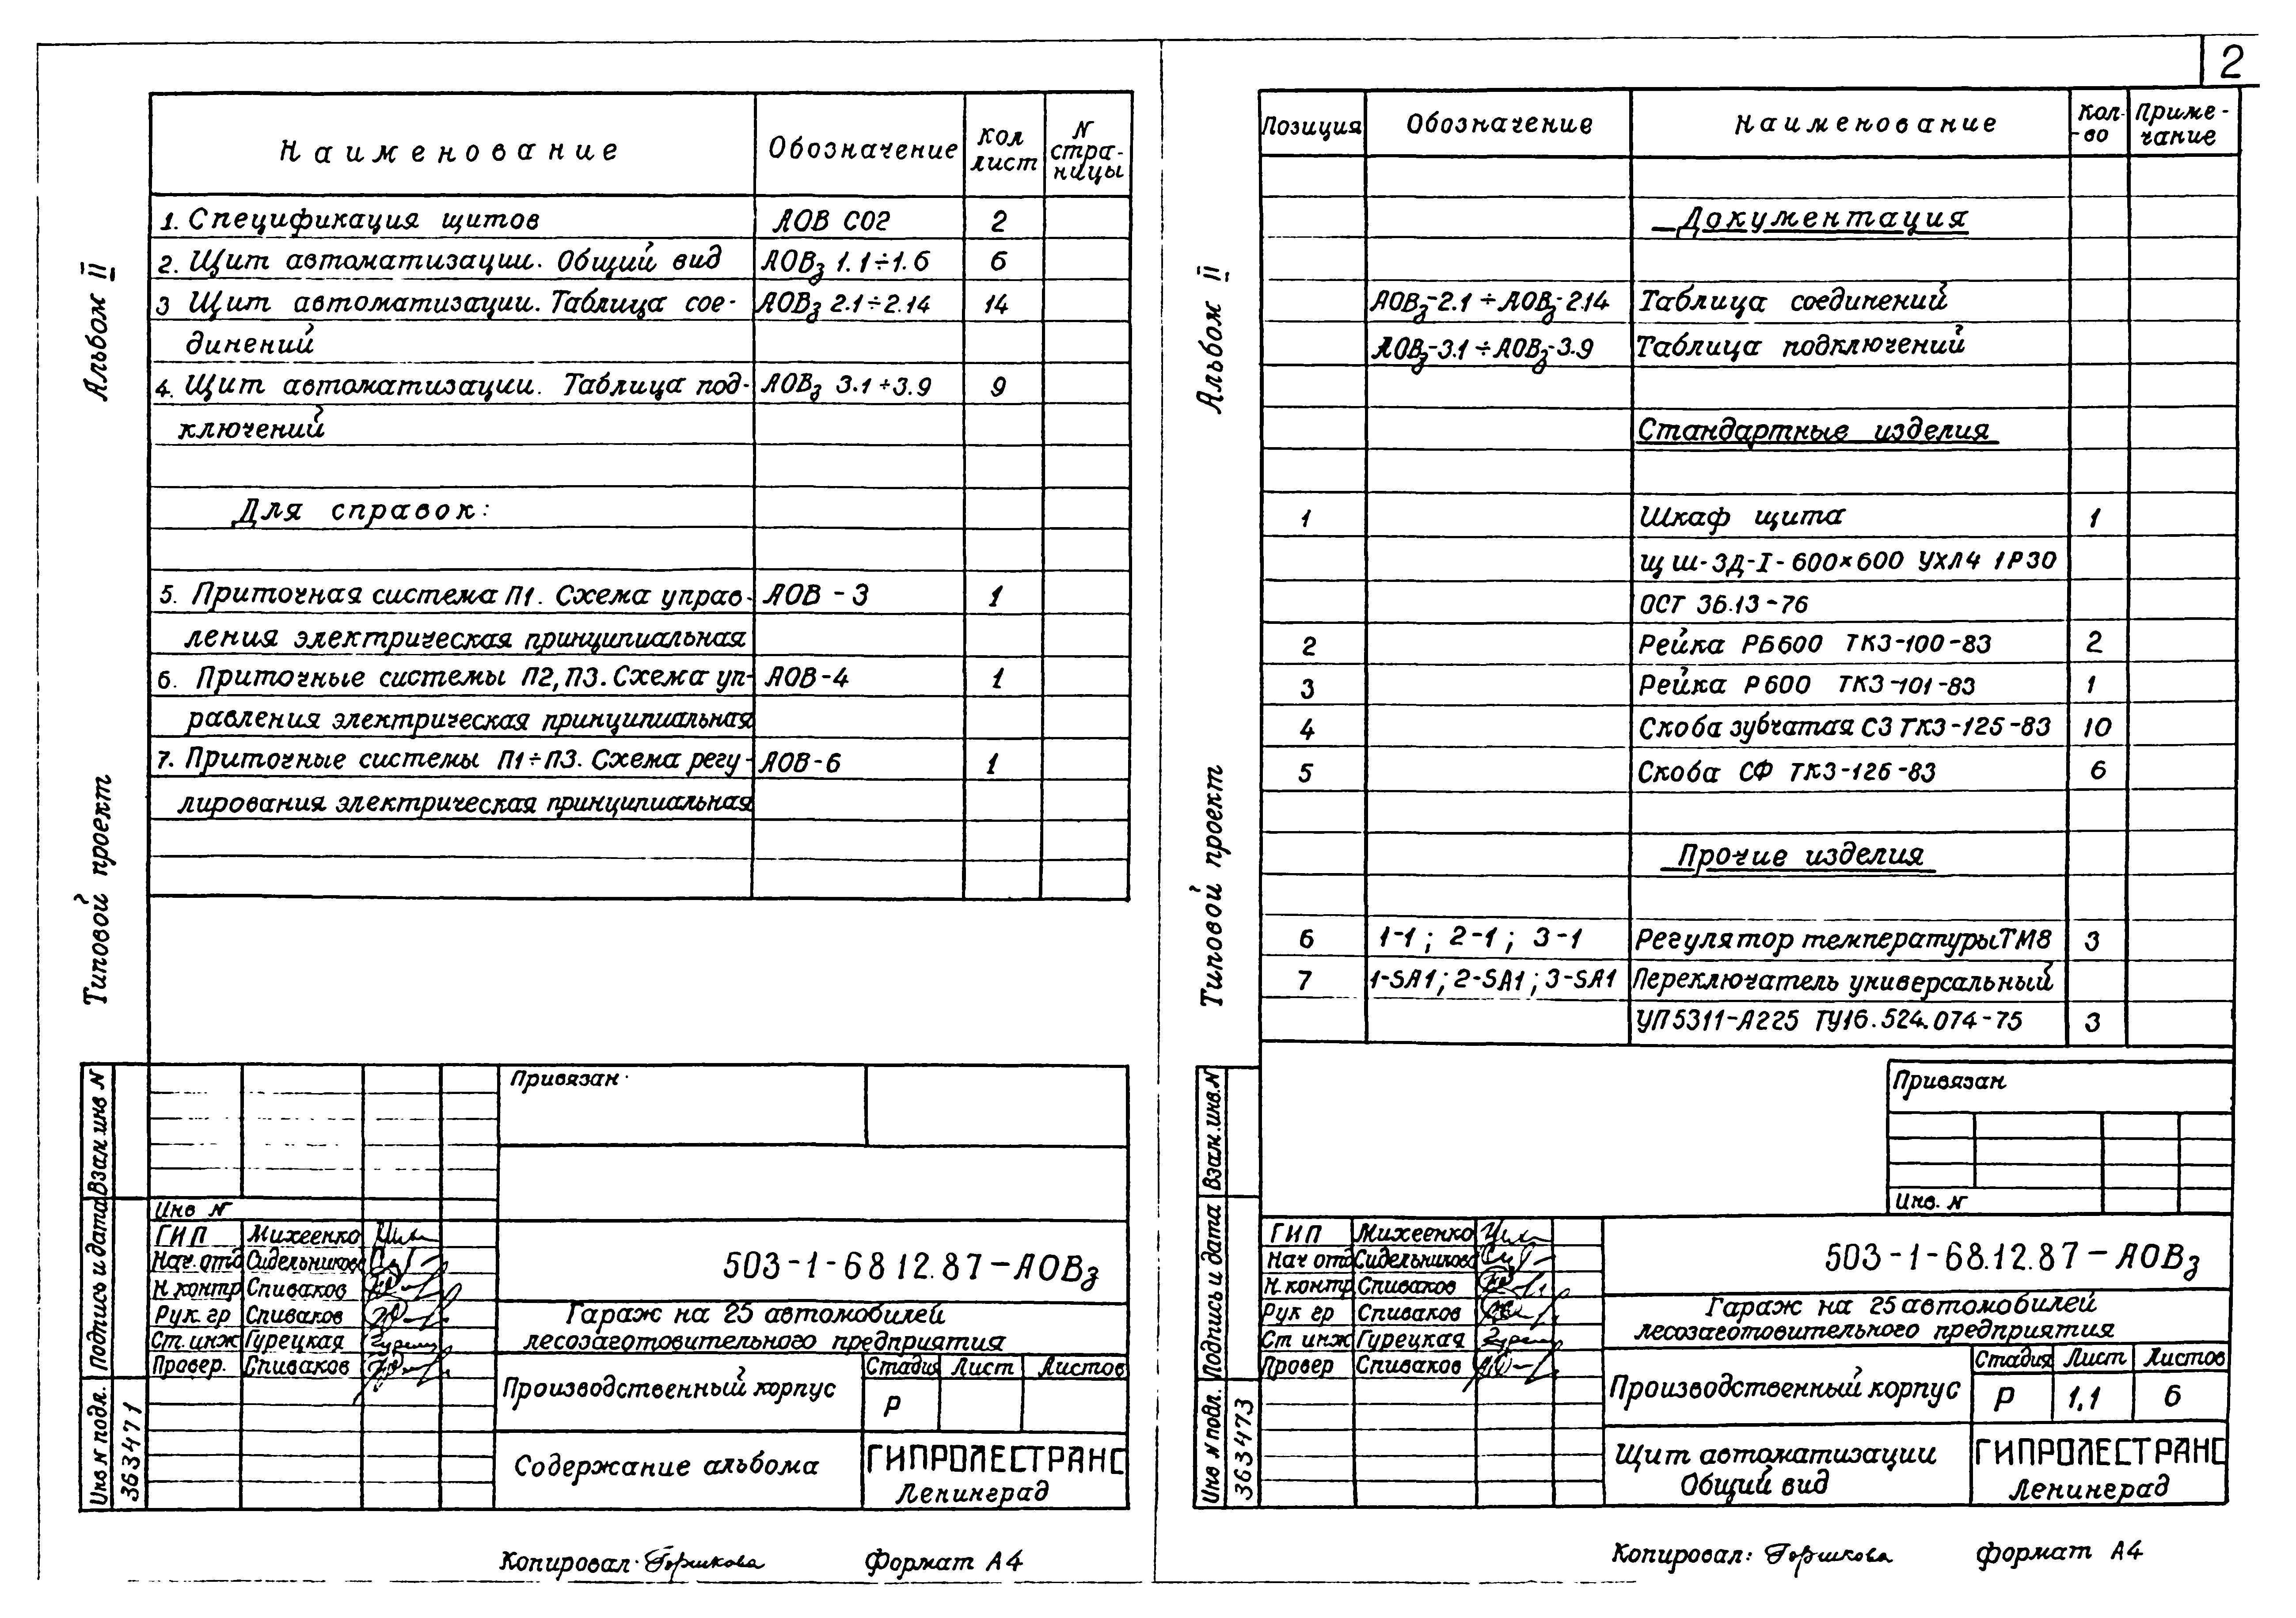 2
Альбом II
Типовой проект
Наименование Обозначение Кол лист N стра-ницы
1. Спецификация щитов АОВ СО2 2
2. Щит автоматизации. Общий вид АОВз 1.1÷1.6 6
3 Щит автоматизации. Таблица сое- АОВз 2.1÷2.14 14
динений
4. Щит автоматизации. Таблица под- АОВз 3.1÷3.9 9
ключений
Для справок:
5. Приточная система П1. Схема управ- АОВ-3 1
ления электрическая принципиальная
6. Приточные системы П2, П3. Схема уп- АОВ-4 1
равления электрическая принципиальная
7. Приточные системы П1÷П3. Схема регу- АОВ-6 1
лирования электрическая принципиальная
Взам.инв N
Подпись и дата
Инв N подл.
363471
Привязан
Инв N
ГИП Михеенко
Нач.отд Сидельников
Н.контр Спиваков
Рук гр Спиваков
Ст.инж Гурецкая
Провер. Спиваков
503-1-68.12.87-АОВз
Гараж на 25 автомобилей
лесозаготовительного предприятия
Производственный корпус
Стадия Лист Листов
Р
Содержание альбома
ГИПРОЛЕСТРАНС
Ленинград
Копировал: Горшкова Формат А4
Альбом II
Типовой проект
Позиция Обозначение Наименование Кол-во Приме-чание
Документация
АОВз-2.1÷АОВз-2.14 Таблица соединений
АОВз-3.1÷АОВз-3.9 Таблица подключений
Стандартные изделия
1 Шкаф щита 1
ЩШ-ЗД-I-600×600 УХЛ4 1Р30
ОСТ 36.13-76
2 Рейка РБ600 ТК3-100-83 2
3 Рейка Р600 ТК3-101-83 1
4 Скоба зубчатая СЗ ТК3-125-83 10
5 Скоба СФ ТК3-126-83 6
Прочие изделия
6 1-1; 2-1; 3-1 Регулятор температуры ТМ8 3
7 1-SA1; 2-SA1; 3-SA1 Переключатель универсальный
УП5311-А225 ТУ16.524.074-75 3
Взам.инв.N
Подпись и дата
Инв N подл.
363473
Привязан
Инв. N
ГИП Михеенко
Нач отд Сидельников
Н.контр Спиваков
Рук гр Спиваков
Ст инж Гурецкая
Провер Спиваков
503-1-68.12.87-АОВз
Гараж на 25 автомобилей
лесозаготовительного предприятия
Производственный корпус
Стадия Лист Листов
Р 1.1 6
Щит автоматизации
Общий вид
ГИПРОЛЕСТРАНС
Ленинград
Копировал: Горшкова Формат А4